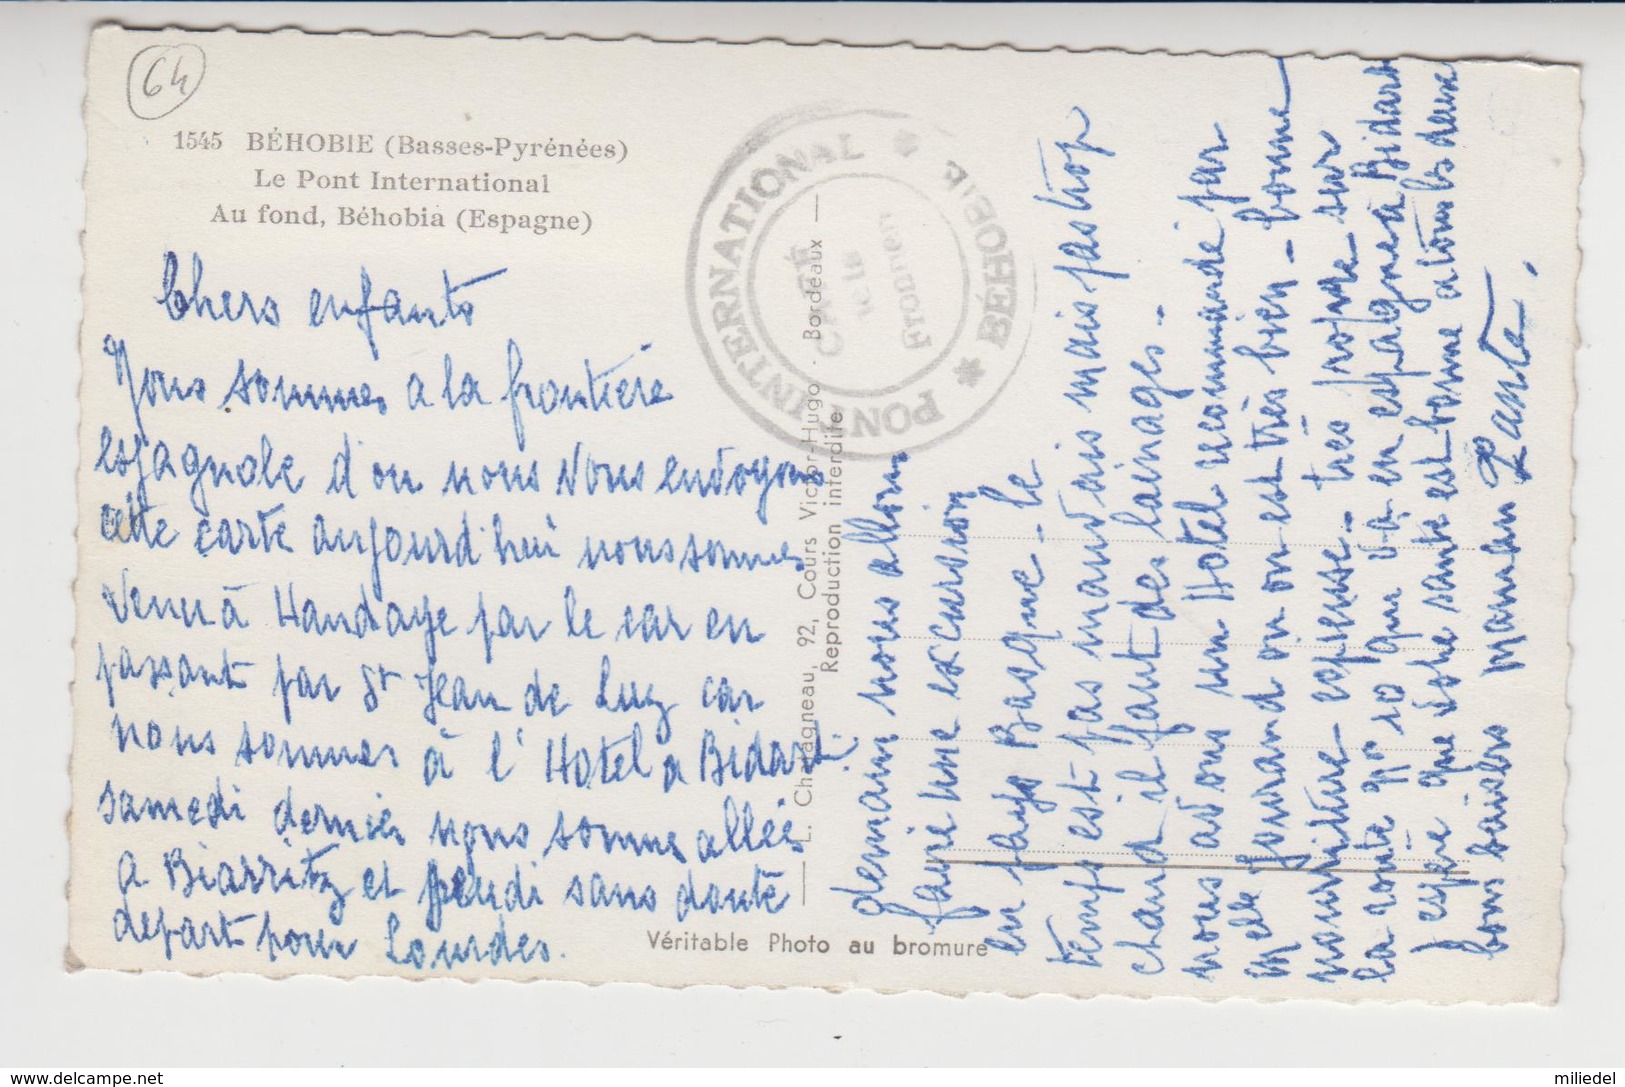 64
1545 BÉHOBIE (Basses-Pyrénées)
Le Pont International
Au fond, Béhobia (Espagne)
Chers enfants
Nous sommes a la frontière
espagnole d'ou nous vous envoyons
cette carte aujourd'hui nous sommes
venu à Handaye par le car en
passant par St Jean de Luz car
nous sommes à l'Hotel a Bidart.
samedi dernier nous sommes allées
a Biarritz et jeudi sans doute
depart pour Lourdes.
PONT INTERNATIONAL * BÉHOBIE *
CAFÉ
L. Chatagneau, 92, Cours Victor-Hugo - Bordeaux
Reproduction interdite
Véritable Photo au bromure
demain nous allons
faire une excursion
en pays Basque - le
temps est pas mauvais mais pas trop
chaud il faut des lainages -
nous avons un Hotel recommandé par
Melle on est très bien - bonne
nourriture - très propre sur
la route N° 10 qui va en espagne a Bidart
J espere que votre sante est bonne a tous les deux
bons baisers maman Zante.
www.delcampe.net
miliedel